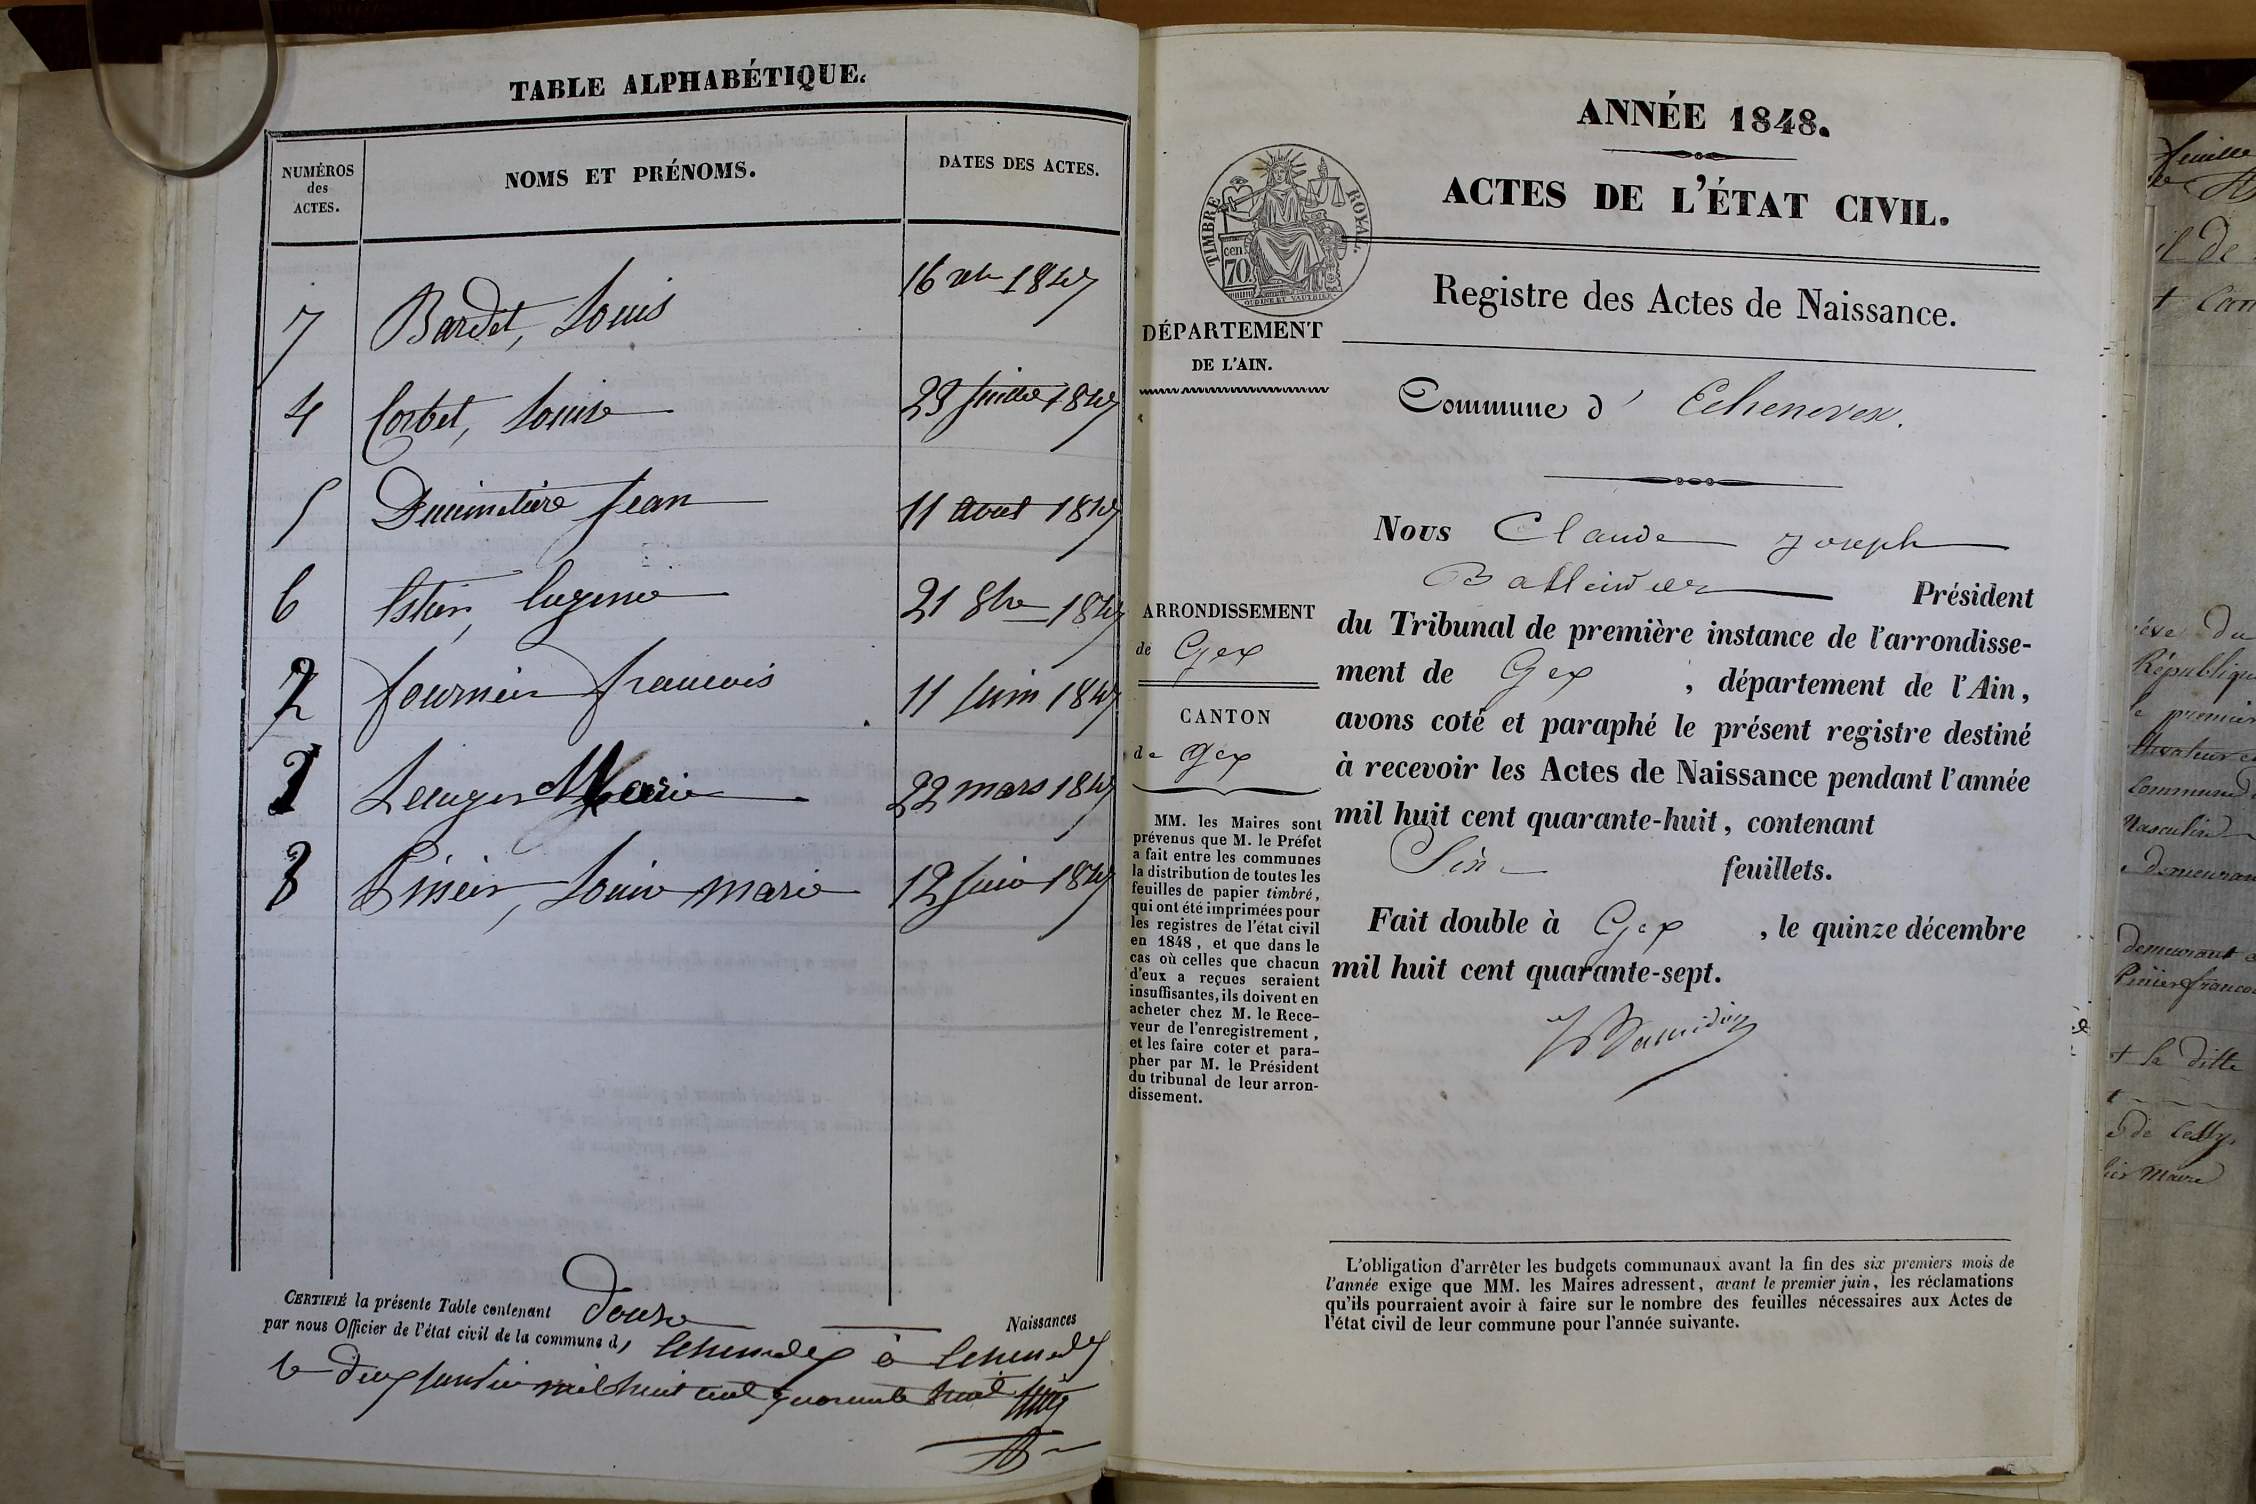 TABLE ALPHABÉTIQUE.
NUMÉROS des ACTES.
NOMS ET PRÉNOMS.
DATES DES ACTES.
7 Bardet, Louis 1847
4 Corbet, Louise 23 Juillet 1847
5 Jean 11 aout 1847
6 Eugenie 21 8bre 1847
2 fournier francois 11 Juin 1847
1 Marie 22 mars 1847
3 Pinier, Louise marie 12 Juin 1847
CERTIFIÉ la présente Table contenant Naissances
par nous Officier de l'état civil de la commune d' Echenevex à Echenevex
le deux Janvier mil huit cent quarante huit
ANNÉE 1848.
ACTES DE L'ÉTAT CIVIL.
TIMBRE ROYAL.
70 cen
OUDINÉ ET VAUTHIER
Registre des Actes de Naissance.
DÉPARTEMENT
DE L'AIN.
Commune d' Echenevex.
ARRONDISSEMENT
de Gex
CANTON
de Gex
MM. les Maires sont
prévenus que M. le Préfet
a fait entre les communes
la distribution de toutes les
feuilles de papier timbré,
qui ont été imprimées pour
les registres de l'état civil
en 1848, et que dans le
cas où celles que chacun
d'eux a reçues seraient
insuffisantes, ils doivent en
acheter chez M. le Rece-
veur de l'enregistrement,
et les faire coter et para-
pher par M. le Président
du tribunal de leur arron-
dissement.
Nous Claude Joseph
Président
du Tribunal de première instance de l'arrondisse-
ment de Gex, département de l'Ain,
avons coté et paraphé le présent registre destiné
à recevoir les Actes de Naissance pendant l'année
mil huit cent quarante-huit, contenant
Six feuillets.
Fait double à Gex, le quinze décembre
mil huit cent quarante-sept.
L'obligation d'arrêter les budgets communaux avant la fin des six premiers mois de
l'année exige que MM. les Maires adressent, avant le premier juin, les réclamations
qu'ils pourraient avoir à faire sur le nombre des feuilles nécessaires aux Actes de
l'état civil de leur commune pour l'année suivante.
feuille
il de
du
République
le premier
masculin
demeurant
Pinier francois
et la ditte
de Cessy
maire